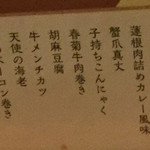 蓮根肉詰めカレー風味
蟹爪真丈
子持ちこんにゃく
春菊牛肉巻き
胡麻豆腐
牛メンチカツ
天使の海老
コン巻き